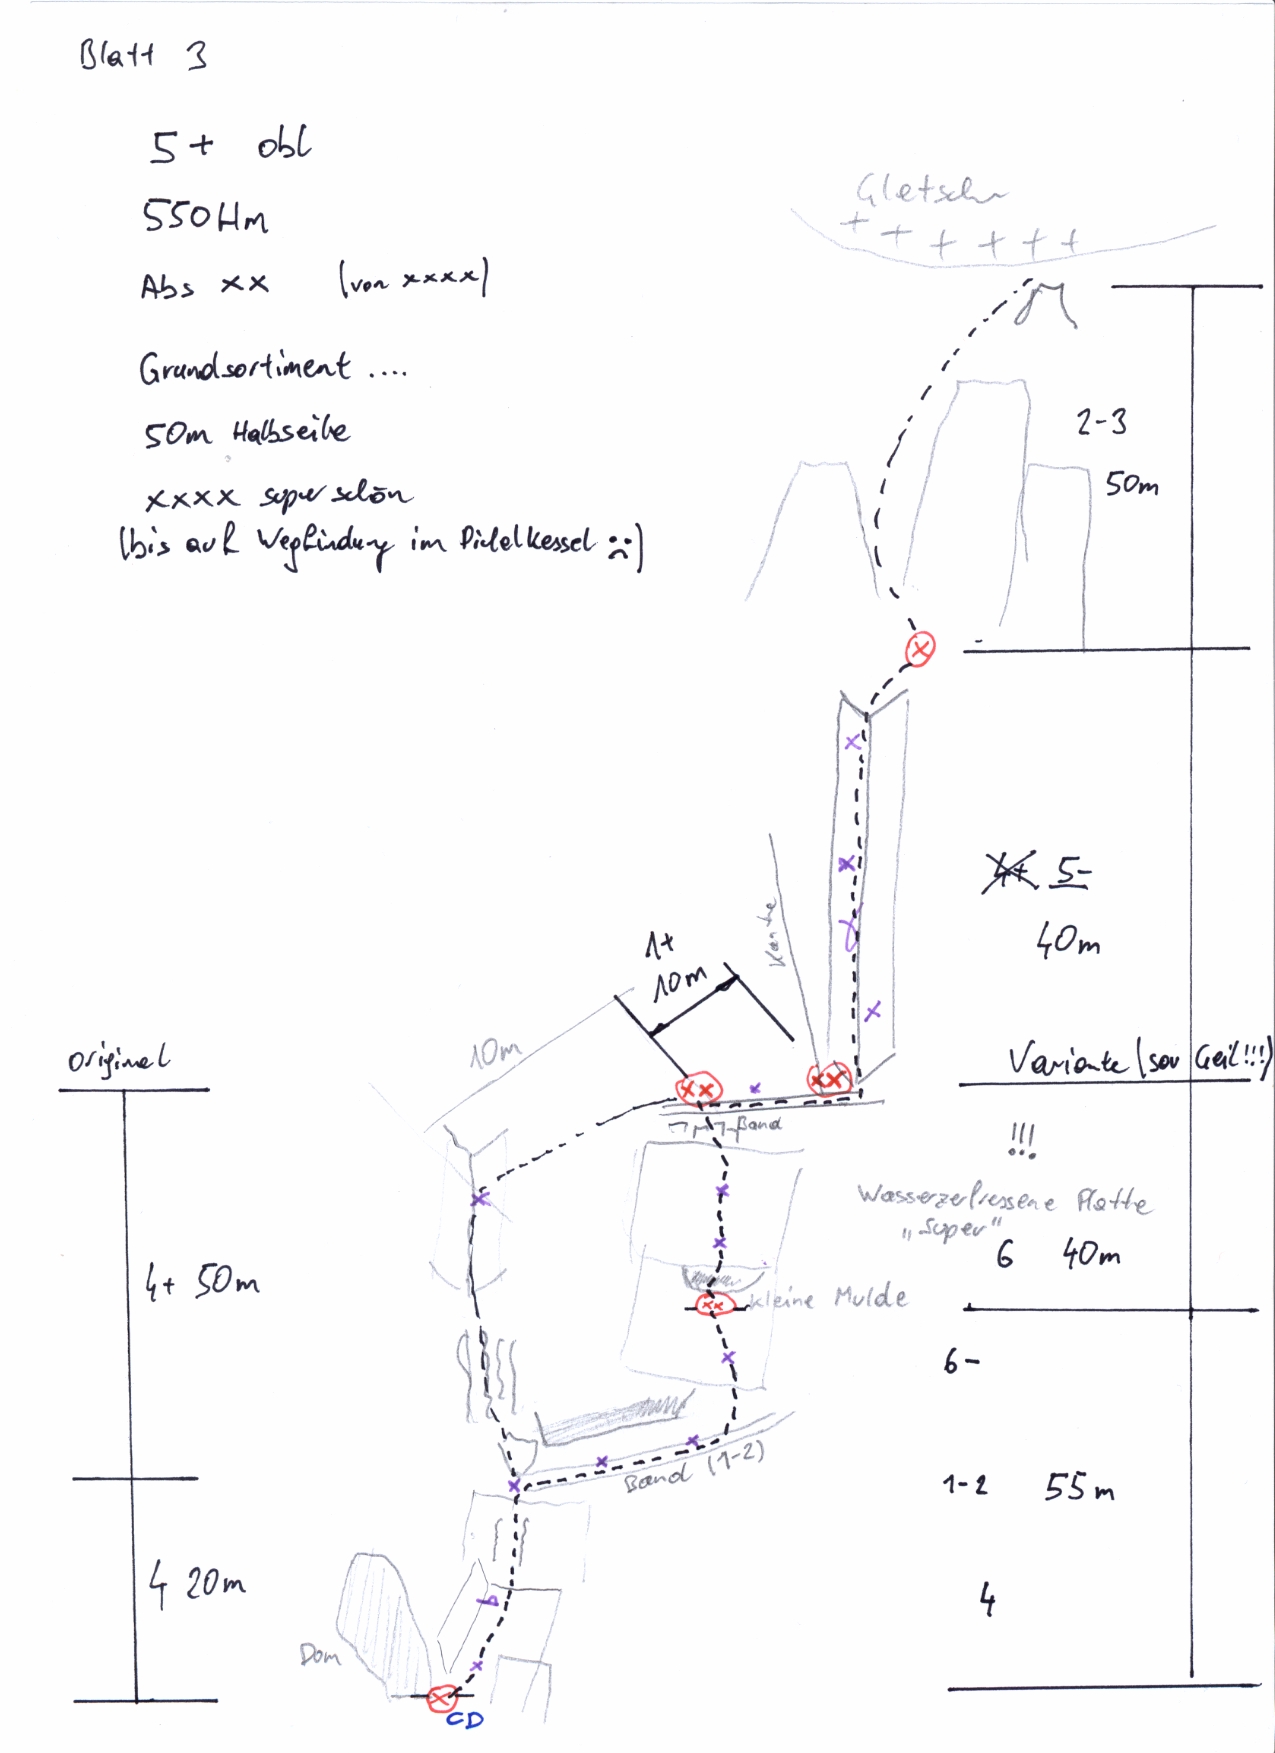 Blatt 3
5+ obl
550Hm
Abs xx (von xxxx)
Grundsortiment ....
50m Halbseile
xxxx super schön
(bis auf Wegfindung im Pichelkessel :()
Gletscher
2-3
50m
4+ 5-
40m
Kante
1+
10m
10m
Original
Variante (sau Geil!!!)
Band
!!!
Wasserzerfressene Platte
"Super"
6 40m
4+ 50m
kleine Mulde
6-
Band (1-2)
1-2 55m
4 20m
4
Dom
CD